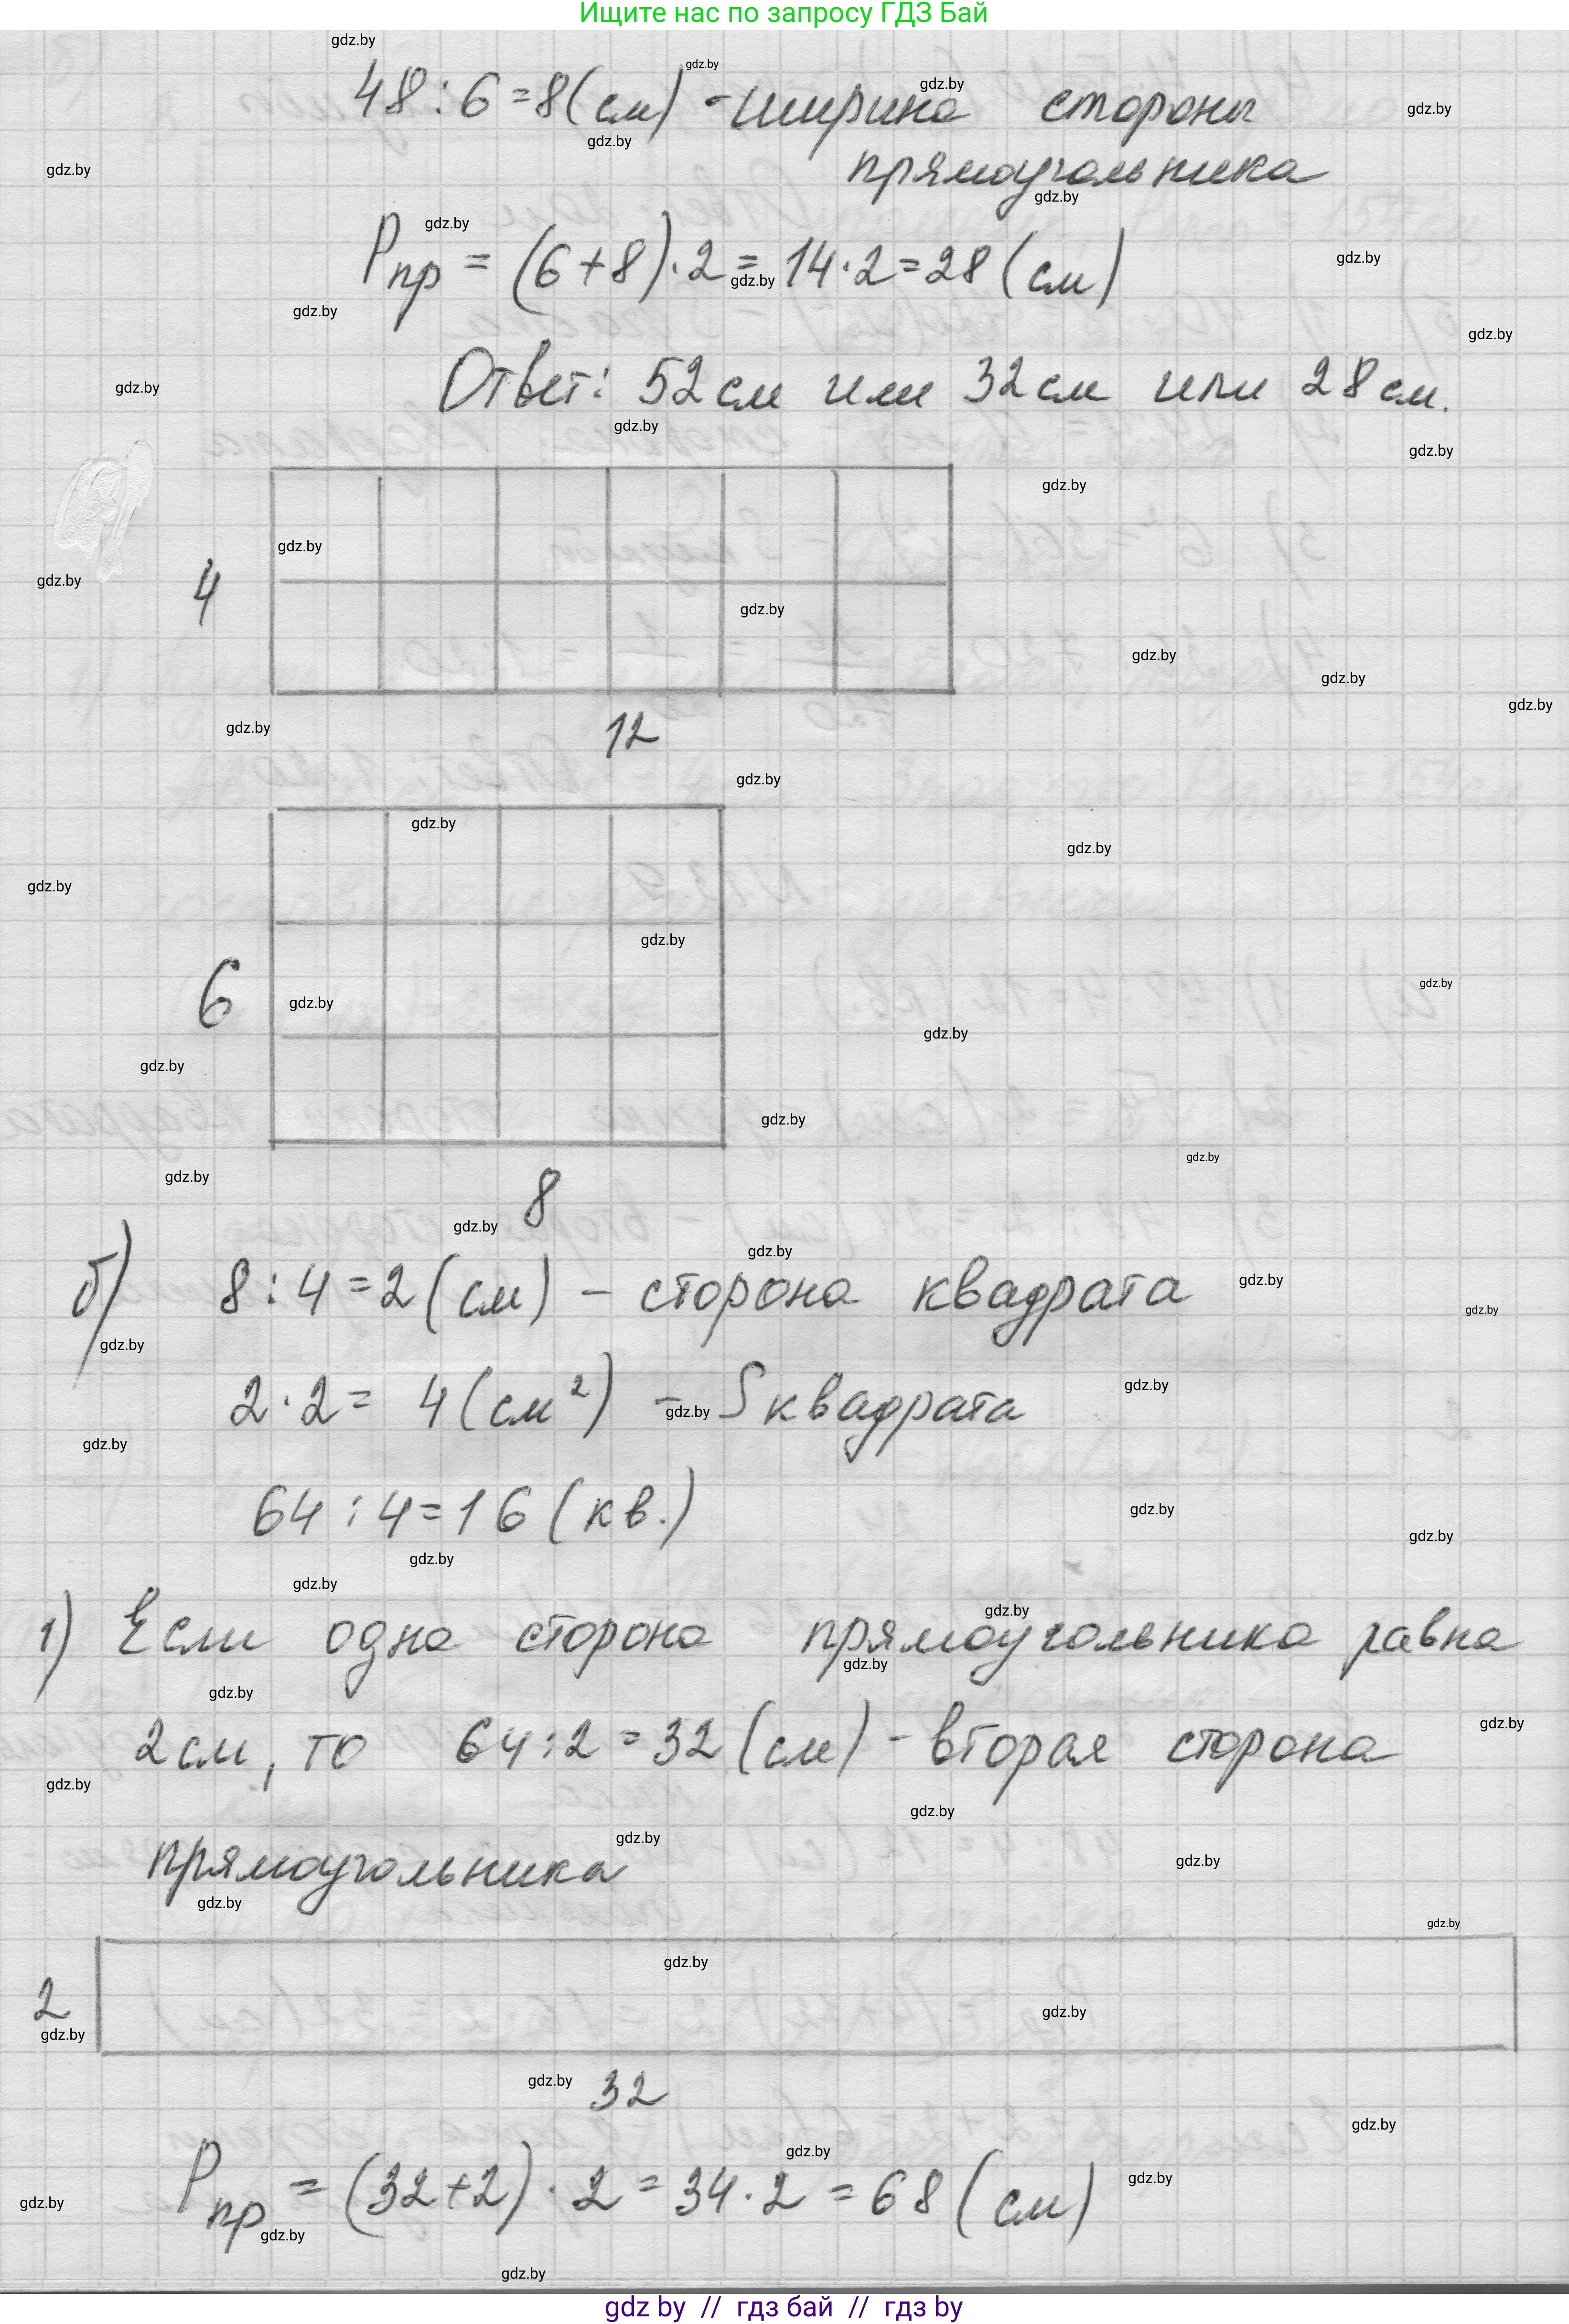 Ищите нас по запросу ГДЗ Бай
48 : 6 = 8 (см) - ширина стороны
прямоугольника
Pпр = (6 + 8) · 2 = 14 · 2 = 28 (см)
Ответ: 52 см или 32 см или 28 см.
4
12
6
8
б) 8 : 4 = 2 (см) - сторона квадрата
2 · 2 = 4 (см²) - S квадрата
64 : 4 = 16 (кв.)
1) Если одна сторона прямоугольника равна
2 см, то 64 : 2 = 32 (см) - вторая сторона
прямоугольника
2
32
Pпр = (32 + 2) · 2 = 34 · 2 = 68 (см)
gdz by // гдз бай // гдз by